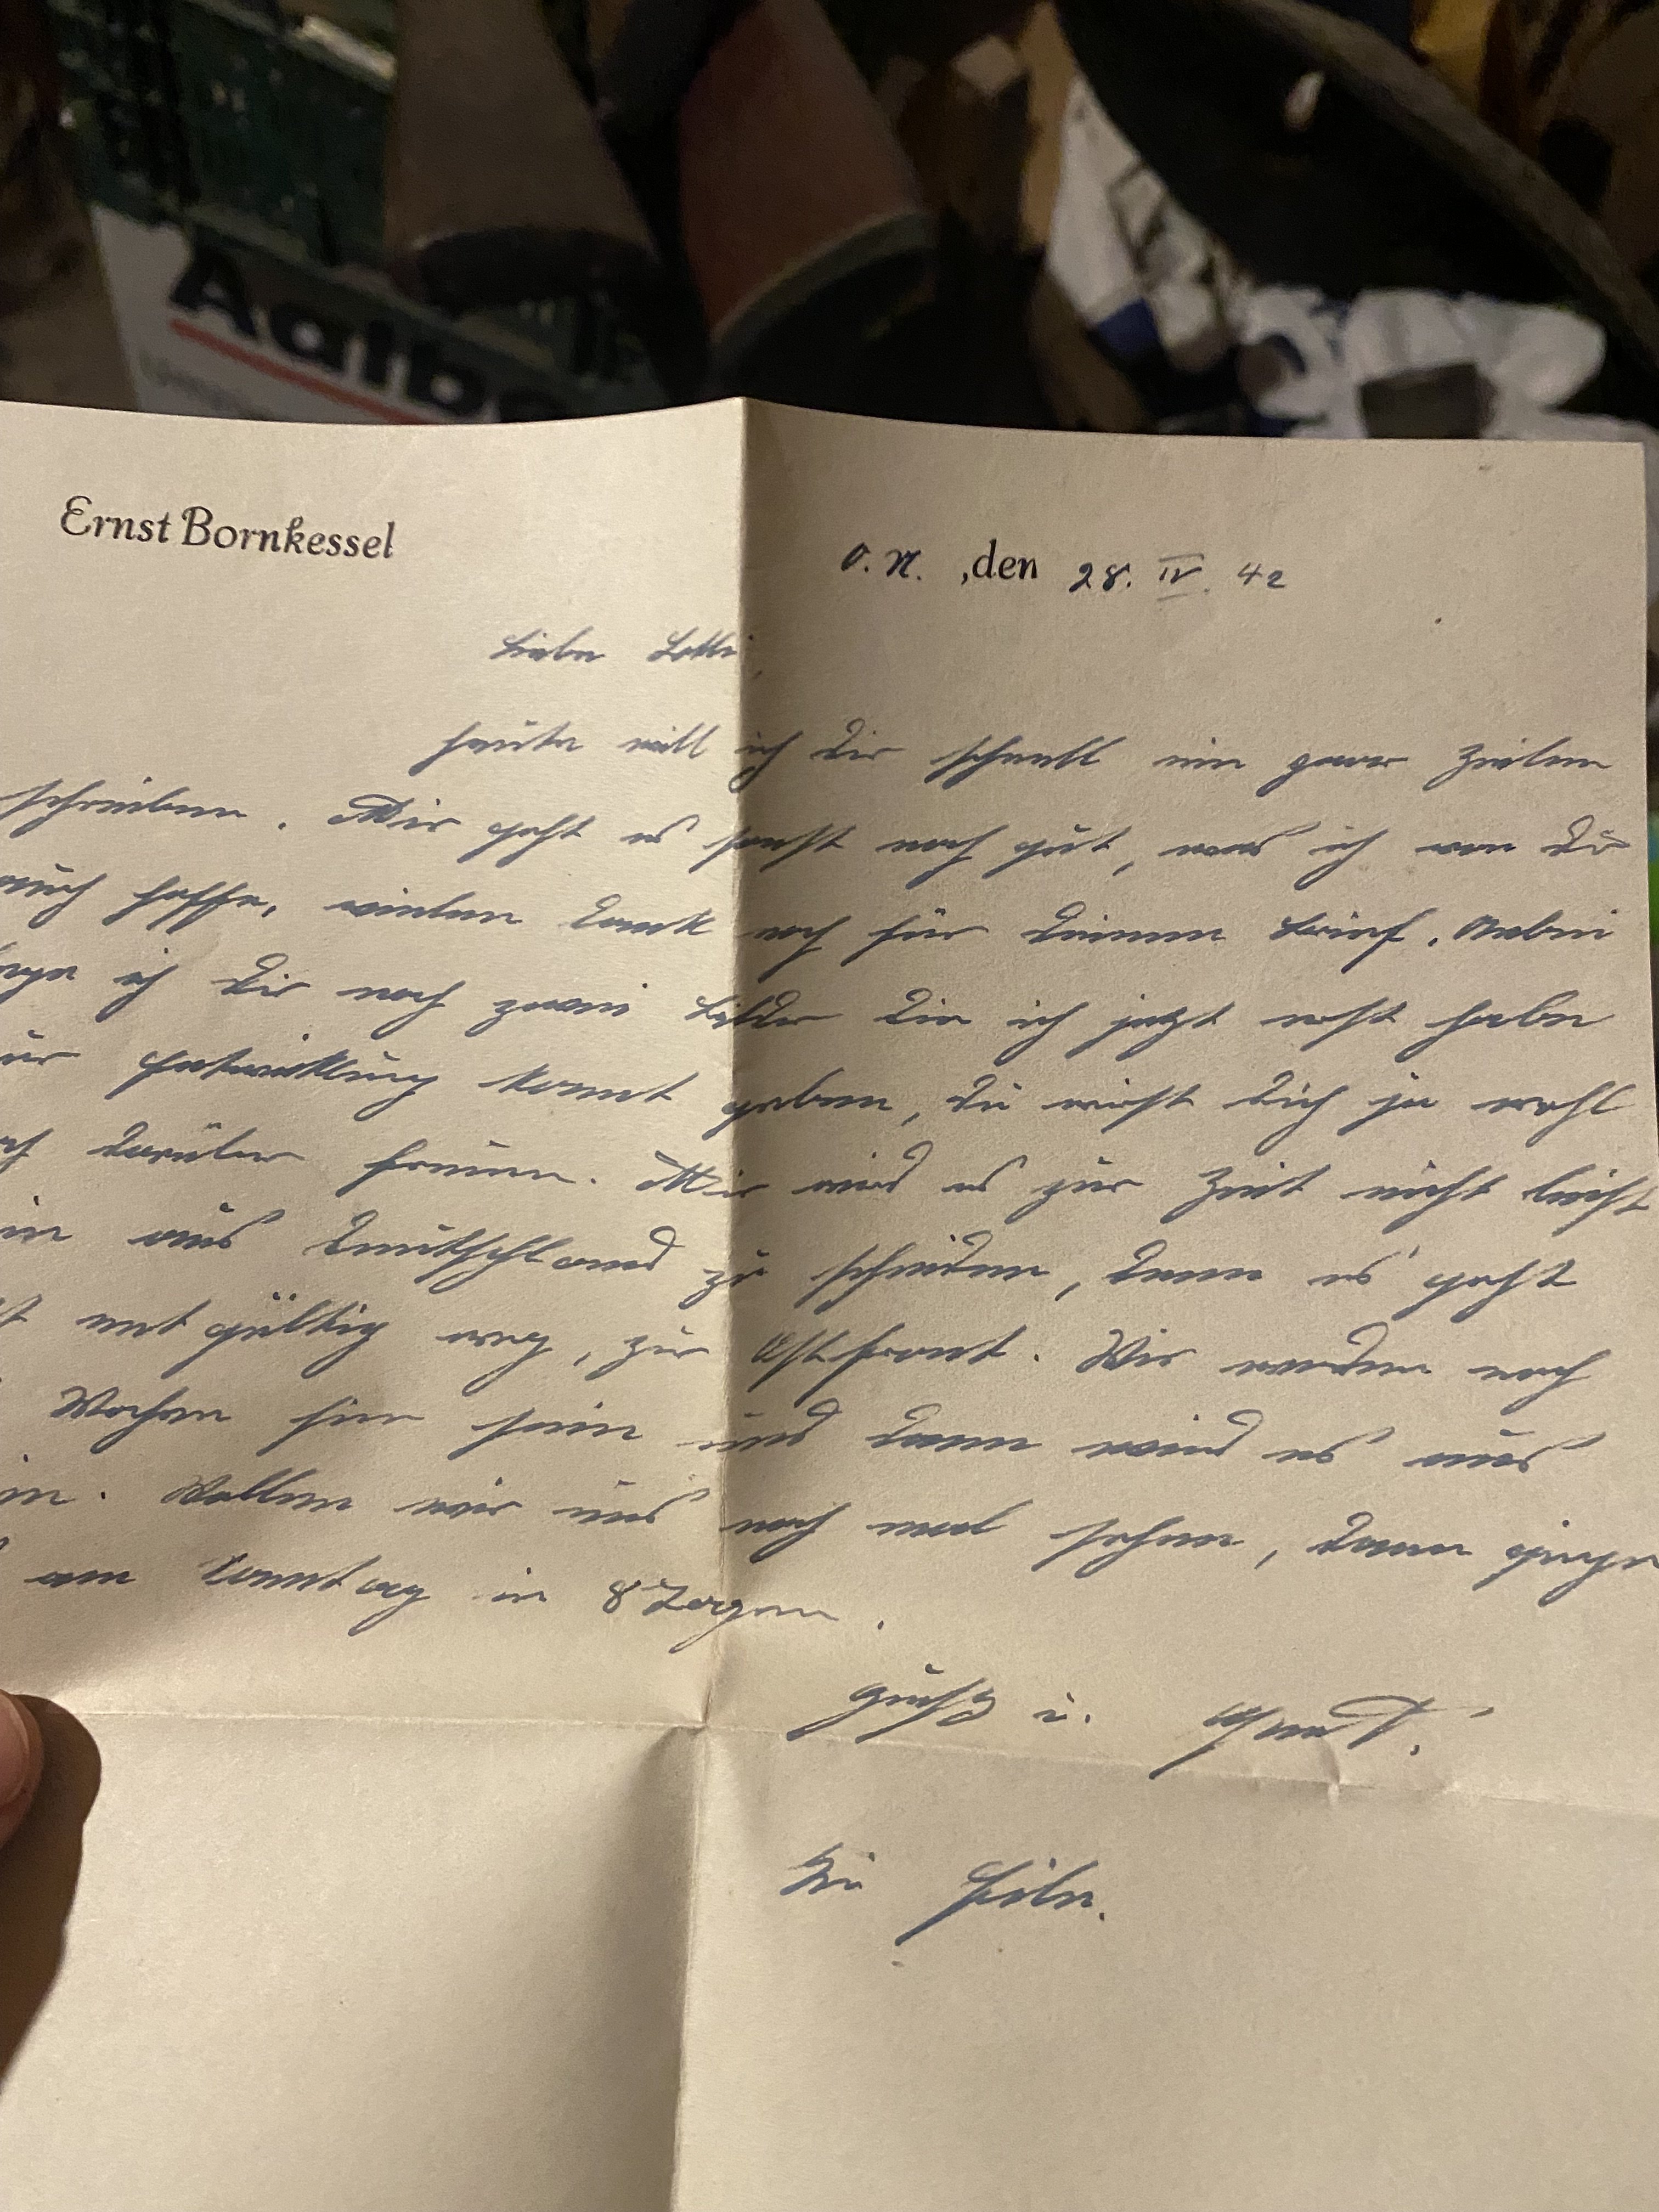 Aalbo
Ernst Bornkessel
O.N. ,den 28. IV. 42
Liebe Lotti,
heute will ich Dir schnell ein paar Zeilen
schreiben. Mir geht es sonst noch gut, was ich von Dir
auch hoffe, vielen Dank noch für Deinen Brief. Anbei
lege ich Dir noch zwei Bilder die ich jetzt erst habe
zur Entwicklung konnt geben, Du wirst Dich ja wohl
auch darüber freuen. Mir wird es zur Zeit nicht leicht
ein aus Deutschland zu scheiden, denn es geht
entgültig weg, zur Ostfront. Wir werden noch
Wochen hier sein und dann wird es aus
sein. Wollen wir uns noch mal sehen, dann ginge
am Sonntag in 8 Tagen.
Gruß u.